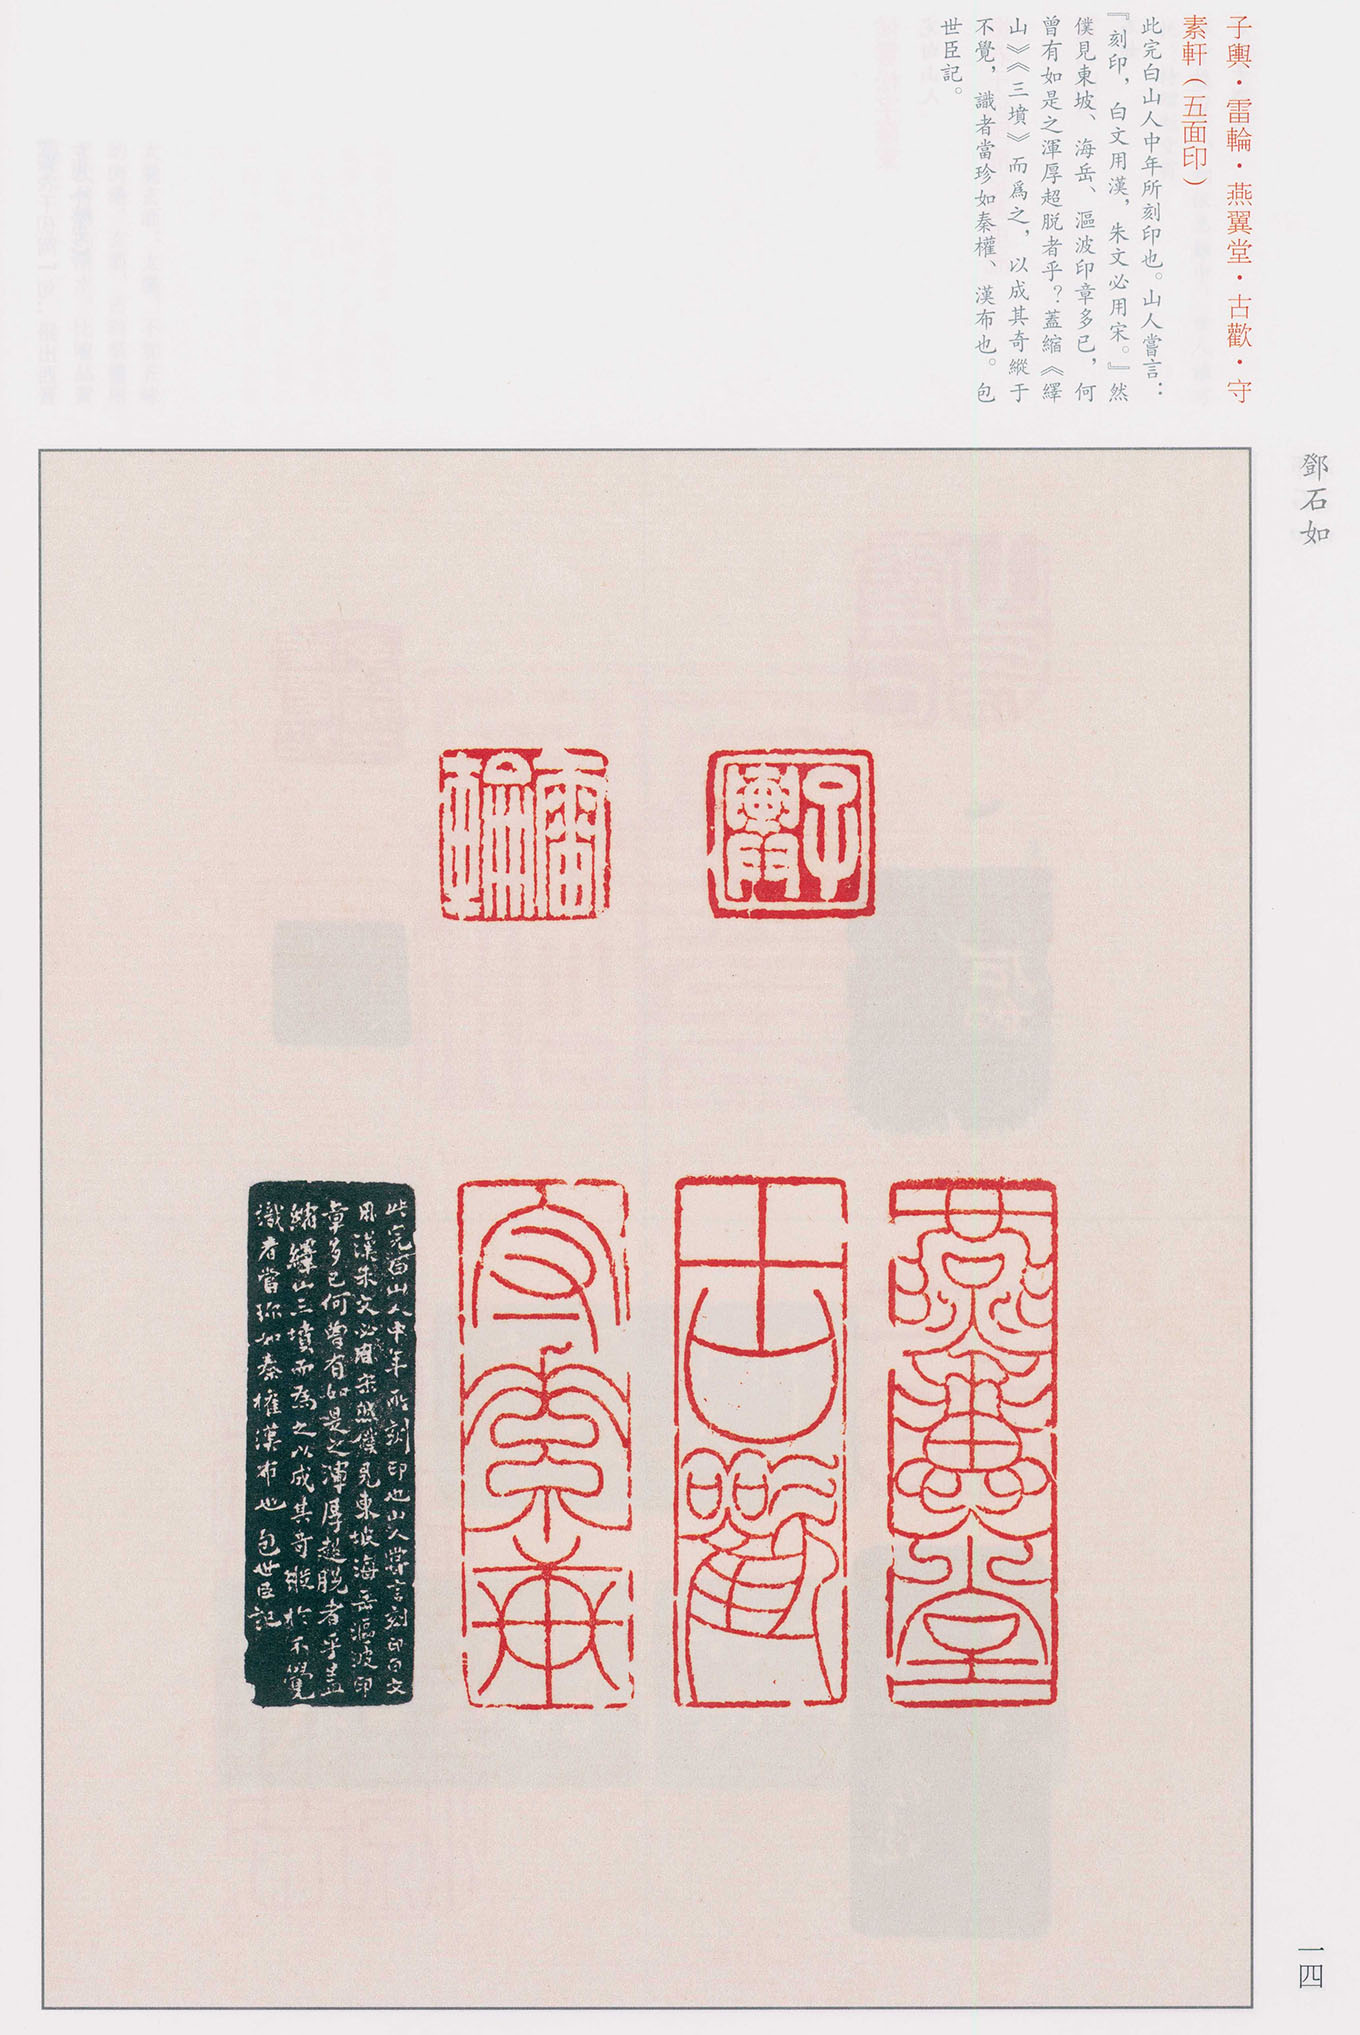 子輿·雷輪·燕翼堂·古歡·守
素軒（五面印）
此完白山人中年所刻印也。山人嘗言：
『刻印，白文用漢，朱文必用宋。』然
僕見東坡、海岳、漚波印章多已，何
曾有如是之渾厚超脫者乎？蓋縮《繹
山》《三墳》而爲之，以成其奇縱于
不覺，識者當珍如秦權、漢布也。包
世臣記。
鄧石如
一四
子輿
雷輪
燕翼堂
古歡
守素軒
此完白山人中年所刻印也山人嘗言刻印白文
用漢朱文必用宋然僕見東坡海岳漚波印
章多已何曾有如是之渾厚超脫者乎蓋
縮繹山三墳而為之以成其奇縱於不覺
識者當珎如秦權漢布也 包世臣記